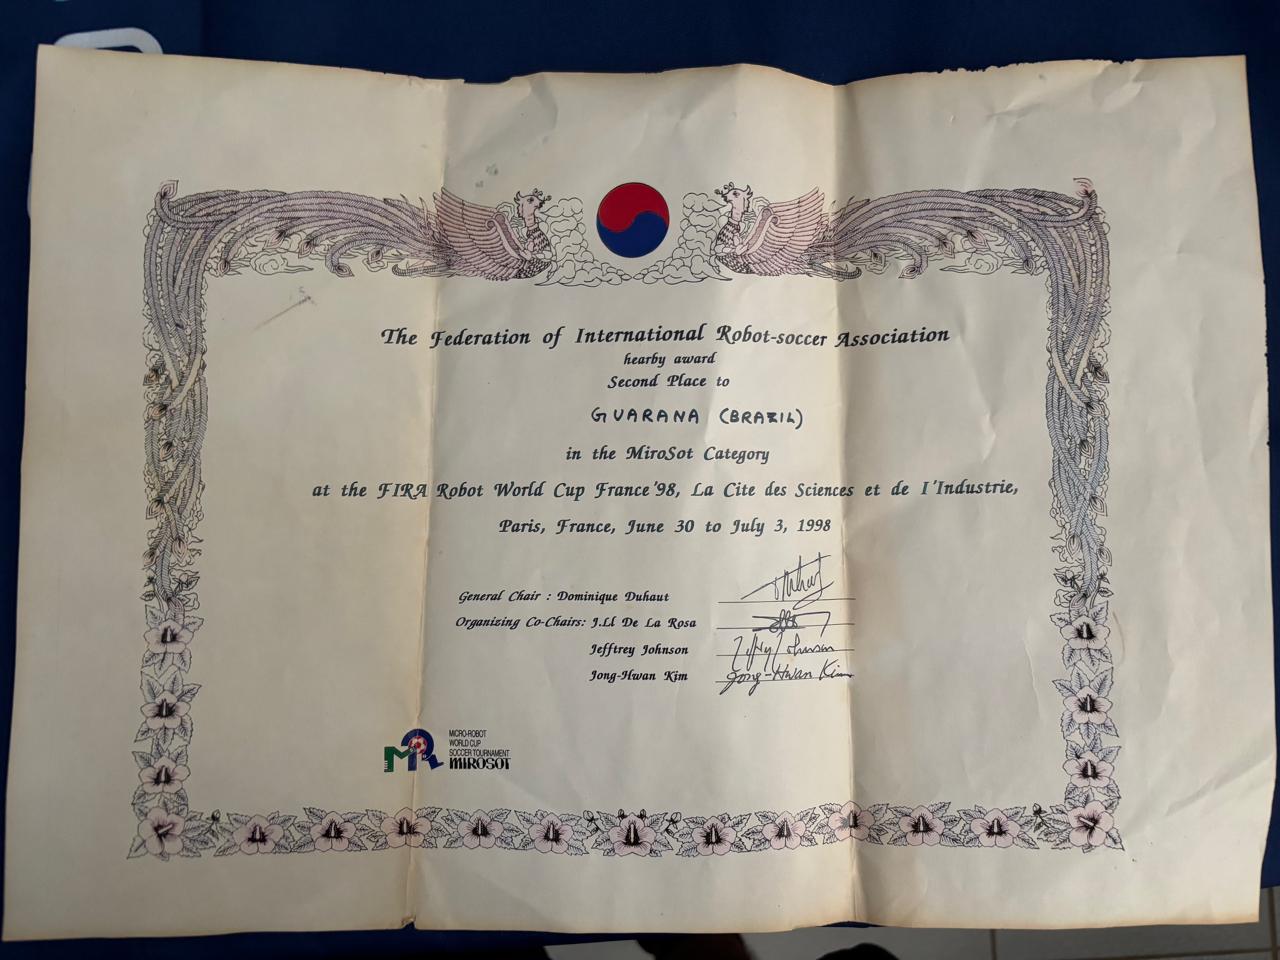 The Federation of International Robot-soccer Association
hearby award
Second Place to
GUARANA (BRAZIL)
in the MiroSot Category
at the FIRA Robot World Cup France'98, La Cite des Sciences et de I'Industrie,
Paris, France, June 30 to July 3, 1998
General Chair : Dominique Duhaut
Organizing Co-Chairs: J.Ll De La Rosa
Jefftrey Johnson
Jeffrey Johnson
Jong-Hwan Kim
Jong-Hwan Kim
MICRO-ROBOT
WORLD CUP
SOCCER TOURNAMENT
MIROSOT